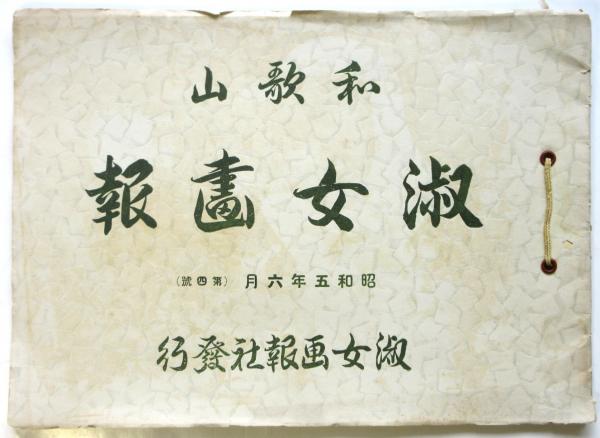 和歌山
淑女畫報
昭和五年六月（第四號）
淑女画報社發行